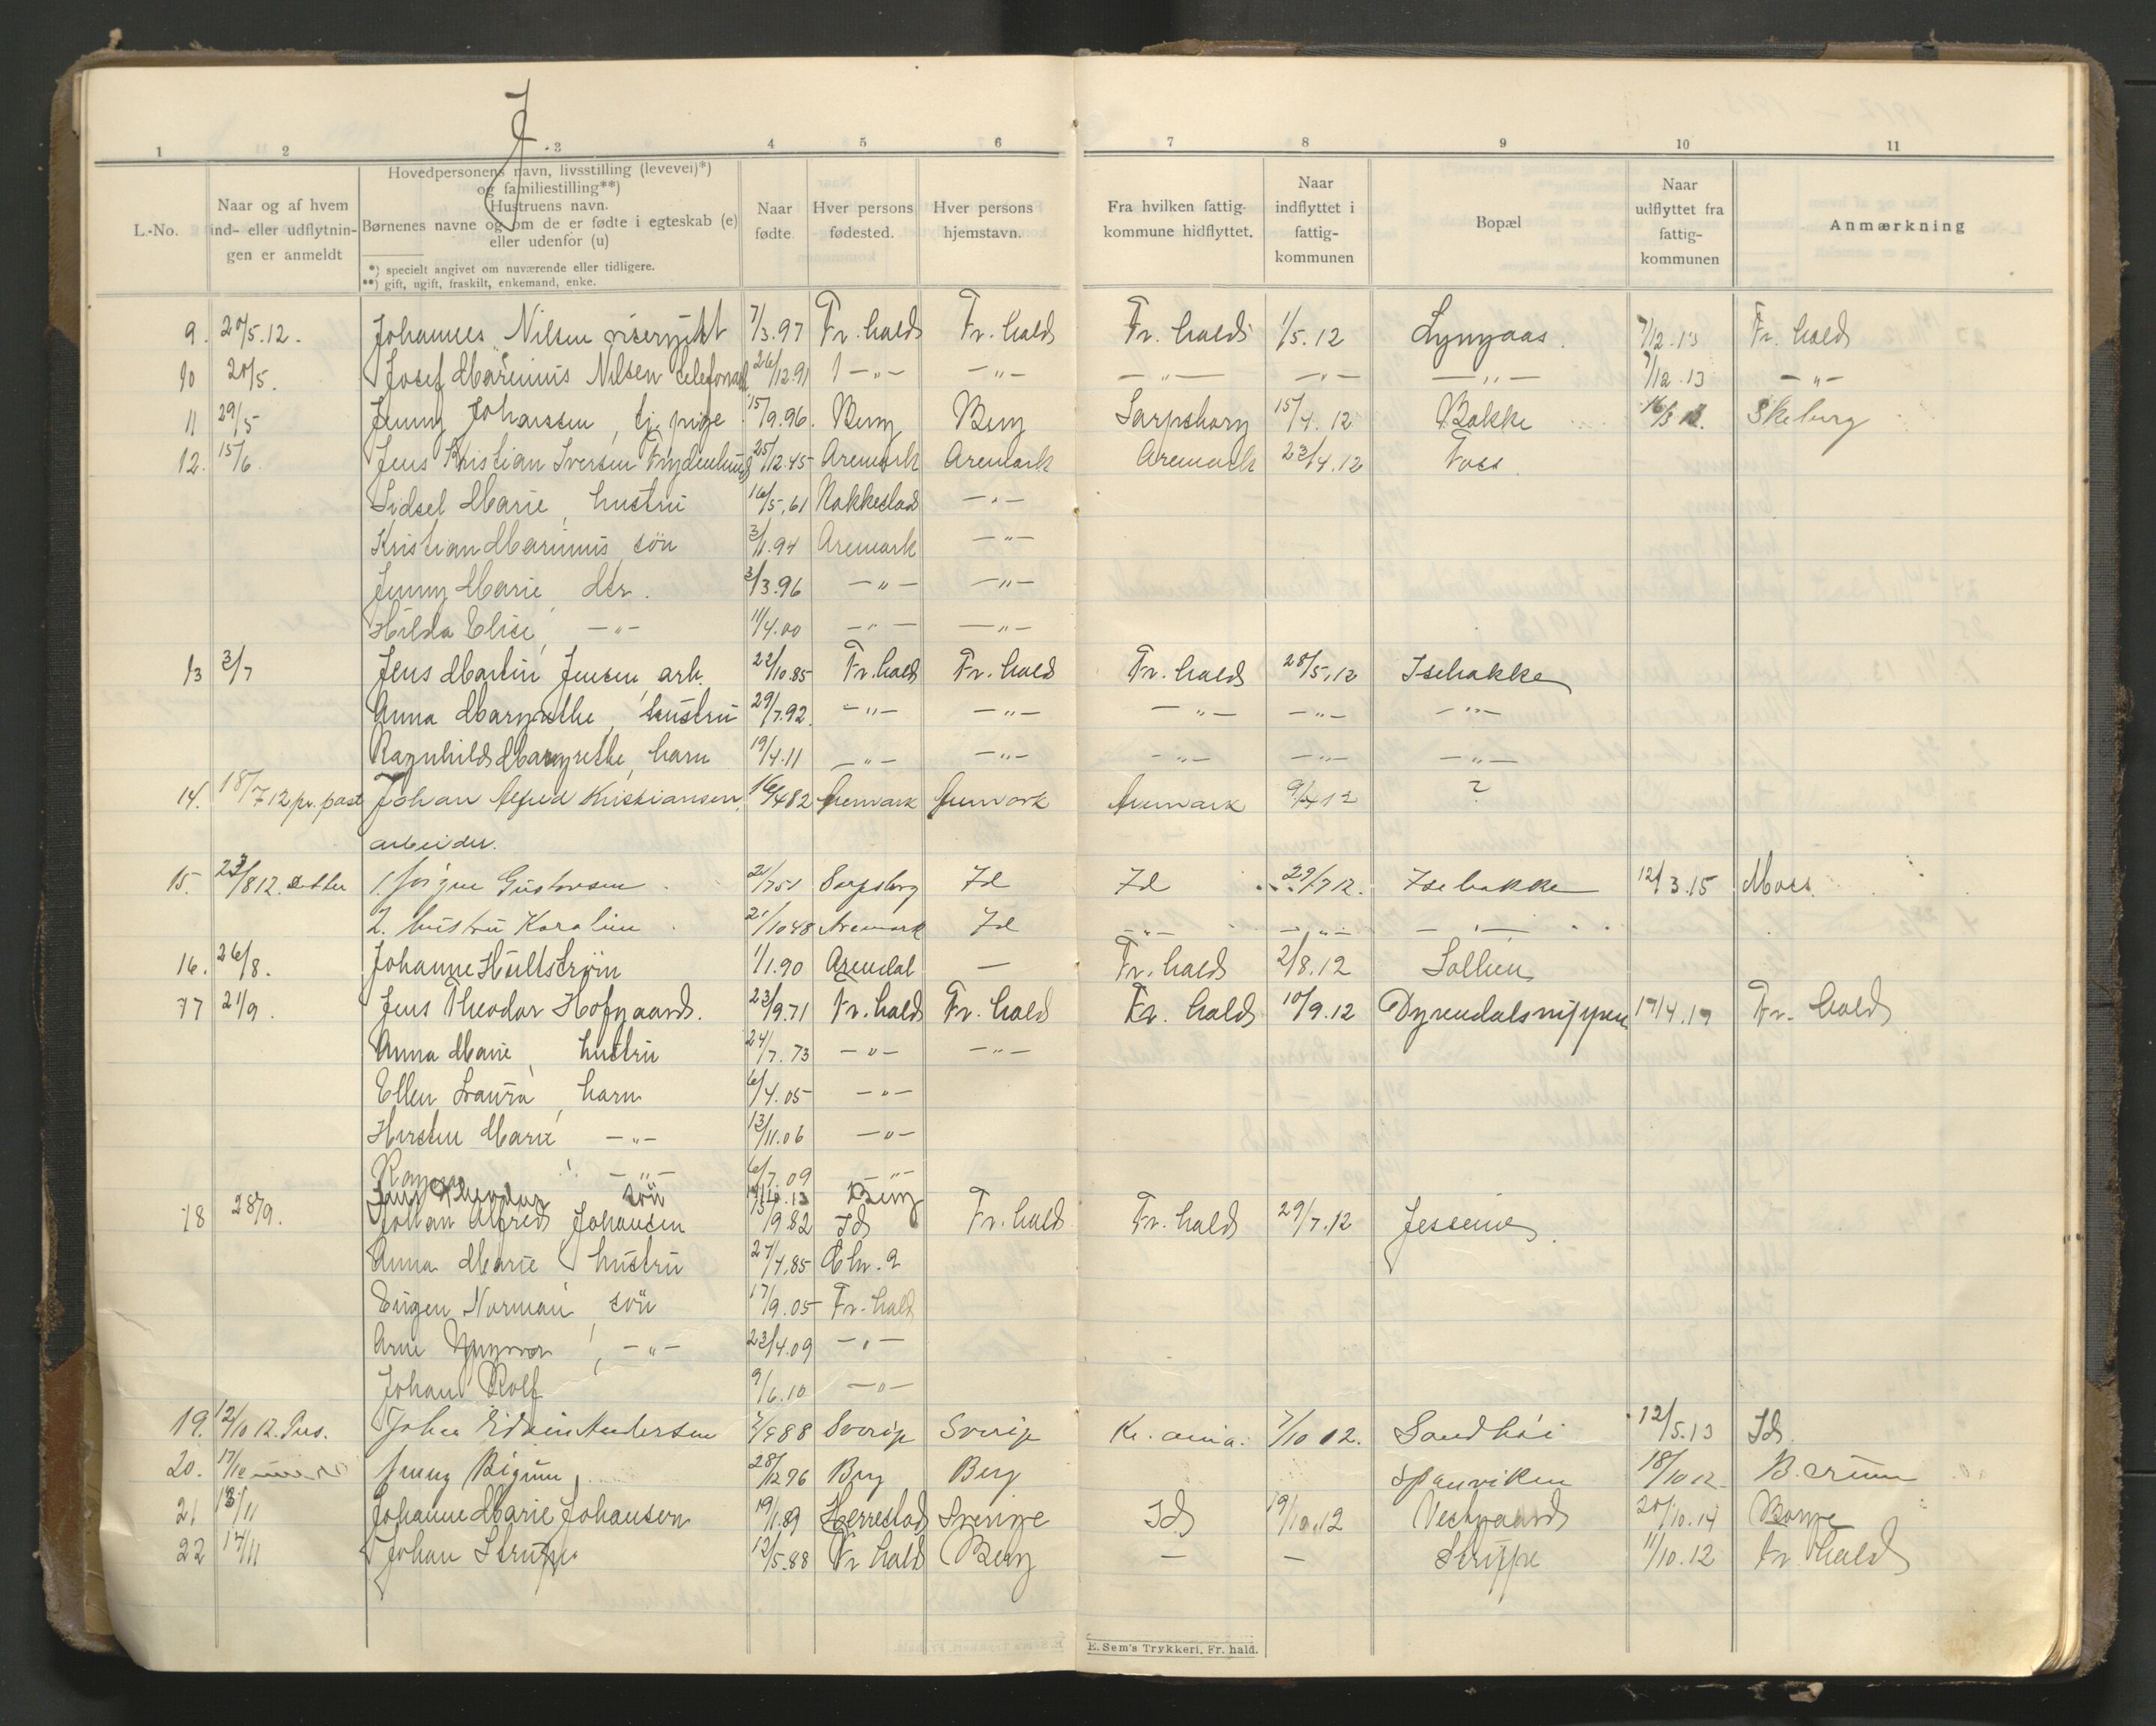 J
1 2 3 4 5 6 7 8 9 10 11
L.-No.
Naar og af hvem ind- eller udflytningen er anmeldt
Hovedpersonens navn, livsstilling (levevei)*)
og familiestilling**)
Hustruens navn.
Børnenes navne og om de er fødte i egteskab (e)
eller udenfor (u)
*) specielt angivet om nuværende eller tidligere.
**) gift, ugift, fraskilt, enkemand, enke.
Naar fødte.
Hver persons fødested.
Hver persons hjemstavn.
Fra hvilken fattigkommune hidflyttet.
Naar indflyttet i fattigkommunen
Bopæl
Naar udflyttet fra fattigkommunen
Anmærkning
9. 20/5.12. Johannes Nilsen 7/3.97 Fr. hald Fr. hald Fr. hald 1/5.12 Lyngaas. 7/12.13 Fr. hald
10 20/5. Josef Marinius Nilsen 26/12.91 -"- -"- -"- -"- -"- 7/12.13 -"-
11 29/5 Jenny Johansen, tj. pige 15/9.96. Berg Berg Sarpsborg 15/4.12 Bakke 16/3 Skeberg
12. 15/6. Jens Kristian Iversen Frydenlund 25/12.45 Aremark Aremark Aremark 23/4.12 Foss.
Sidsel Marie, hustru 16/5.61 Rakkestad -"-
Kristian Marinius, sön 3/1.94 Aremark -"-
Jenny Marie, dtr. 3/3.96 -"- -"-
Hilda Elise, -"- 11/4.00 -"- -"-
13 3/7 Jens Martin Jensen, arb. 22/10.85 Fr. hald Fr. hald Fr. hald 28/5.12 Isebakke
Anna Margrethe, hustru 29/7.92. -"- -"- -"- -"- -"-
Ragnhild Margrethe, barn 19/4.11 -"- -"- -"- -"- -"-
14. 18/7 12 pr. post Johan Alfred Kristiansen, 16/4 82 Aremark Aremark Aremark 9/4 12 ?
arbeider.
15. 23/8 12. 1. Jörgen Gustavsen 21/7 51 Sarpsborg Id Id 29/7 12. Isebakke 12/3.15 Moss.
2. hustru Karoline 21/10 48 Aremark Id -"- -"- -"-
16. 26/8. Johanne Hultström 1/1.90 Arendal — Fr. hald 2/8.12 Sollien
17 21/9. Jens Theodor Hofgaard. 23/9.71 Fr. hald Fr. hald Fr. hald 10/9.12 Dyrendalsnippen 19/4.19 Fr. hald
Anna Marie, hustru 24/7.73 -"- -"-
Ellen Laura, barn 6/4.05 -"-
Kirsten Marie -"- 13/11.06 -"-
Ragna -"- 6/7.09 -"-
Jens Theodor sön Berg
18 28/9. Johan Alfred Johansen 13/9.82 Id Fr. hald Fr. hald 29/7.12 Jessenie
Anna Marie, hustru 27/4.85 Chr.a
Eugen Norman, sön 17/9.05 Fr. hald
Arne Yngvar, -"- 23/4.09 -"-
Johan Rolf 9/6.10 -"-
19. 12/10 12. Pers. Johan Edvin Andersen 88 Sverig Sverig Kr.ania. 7/10 12. Sandhöi 12/5.13 Id.
20. 17/10 Jenny Bigum 28/12 96 Berg Berg Spanviken 18/10 12 Bærum
21 13/11 Johanne Marie Johansen 19/1.89 Herrestad Sverige Id 19/10.12 Vestgaard 20/10.14 Borge
22 14/11 Johan Strupe 12/5.88 Fr hald Berg — — Struppe 11/10.12 Fr. hald
E. Sem's Trykkeri, Fr. hald.